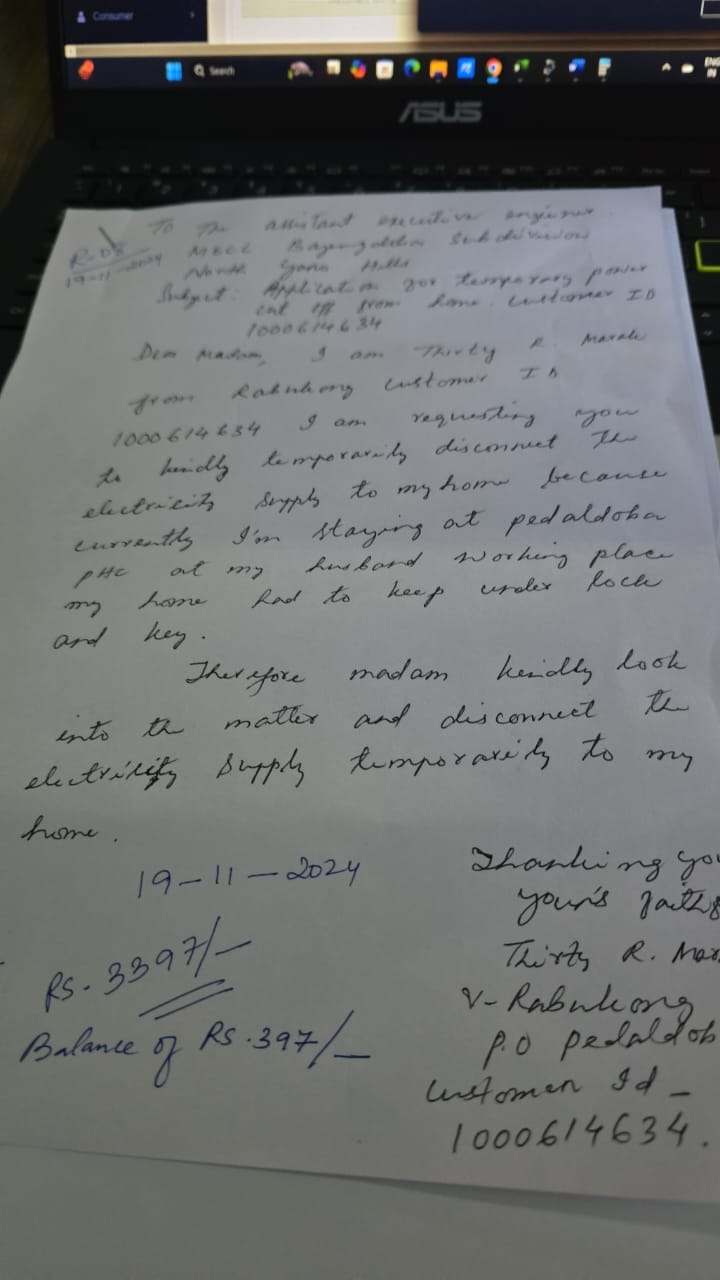 Consumer
Search
ENG
IN
ASUS
R-08
19-11-2024
To The assistant executive engineer
MEECL Bajengdoba Sub division
North Garo Hills
Subject: Application for temporary power
cut off from home. Customer ID
1000614634
Dear Madam, I am Thirty R. Marak
from Rabukong customer ID
1000614634 I am requesting you
to kindly temporarily disconnect the
electricity supply to my home because
currently I'm staying at pedaldoba
PHC at my husband working place
my home had to keep under lock
and key.
Therefore madam kindly look
into the matter and disconnect the
electricity supply temporarily to my
home.
19-11-2024
Thanking you
your's faith
Thirty R. Mar
RS. 3397/-
V- Rabukong
Balance of RS. 397/-
P.O pedaldob
Customer Id -
1000614634.